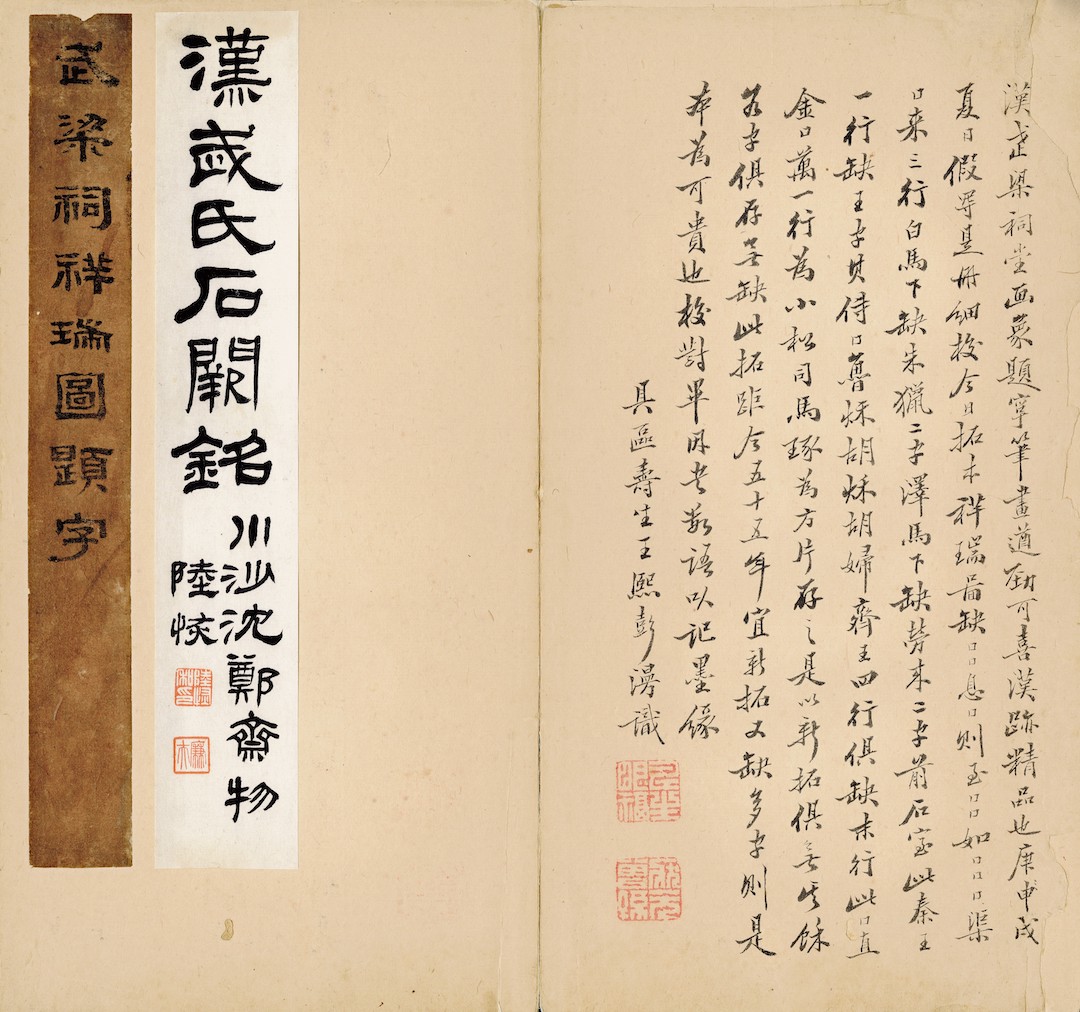 漢武梁祠堂画象題字筆畫遒勁可喜漢跡精品也庚申戌
夏日假得是冊細校今日拓本祥瑞圖缺口口息口則至口口如口口口渠
口来三行白馬下缺朱獵二字澤馬下缺勞来二字前石室此秦王
一行缺王字其侍口魯秋胡秋胡婦齊王四行俱缺末行此口直
金口萬一行為小松司馬琢為方片存之是以新拓俱無其餘
各字俱存無缺此拓距今五十五年宜新拓又缺多字則是
本為可貴也校對畢因書數語以記墨緣
具區壽生王熙彭濤識
漢武氏石闕銘
川沙沈鄭齋物
陸恢
武梁祠祥瑞圖題字